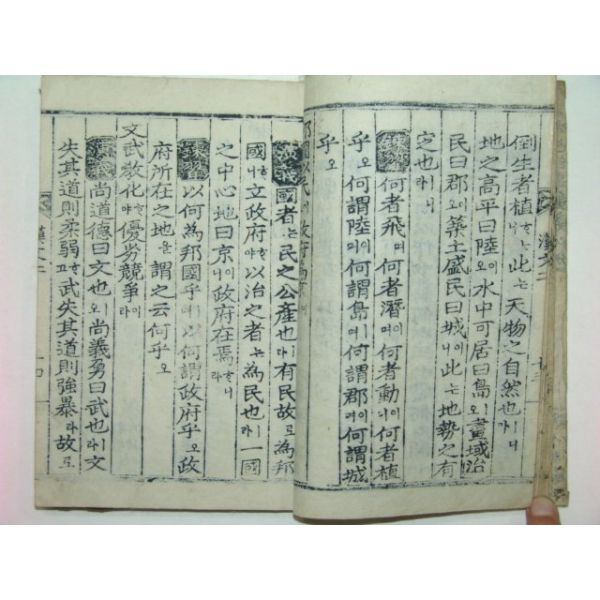 倒生者植ᄒᆞ니此ᄂᆞᆫ天物之自然也ㅣ니
地之高平曰陸이오水中可居曰島ㅣ오畫域治
民曰郡이오築土盛民曰城이니此ᄂᆞᆫ地勢之有
定也ㅣ라
何者飛며何者潛이며何者動이며何者植
乎오何謂陸이며何謂島ㅣ며何謂郡이며何謂城
乎오
國者ᄂᆞᆫ民之公產也ㅣ라有民故로爲邦
國ᄒᆞ니立政府ᄒᆞ야以治之者ᄂᆞᆫ爲民也ㅣ라一國
之中心地曰京이니政府在焉ᄒᆞ니라
練習以何爲邦國乎며以何謂政府乎오政
府所在之地를謂之云何乎오
文武敎化ᄒᆞ야優劣競爭이라
演義尚道德曰文也ㅣ오尚義勇曰武也ㅣ라文
失其道則柔弱ᄒᆞ고武失其道則強暴라故로
漢文二